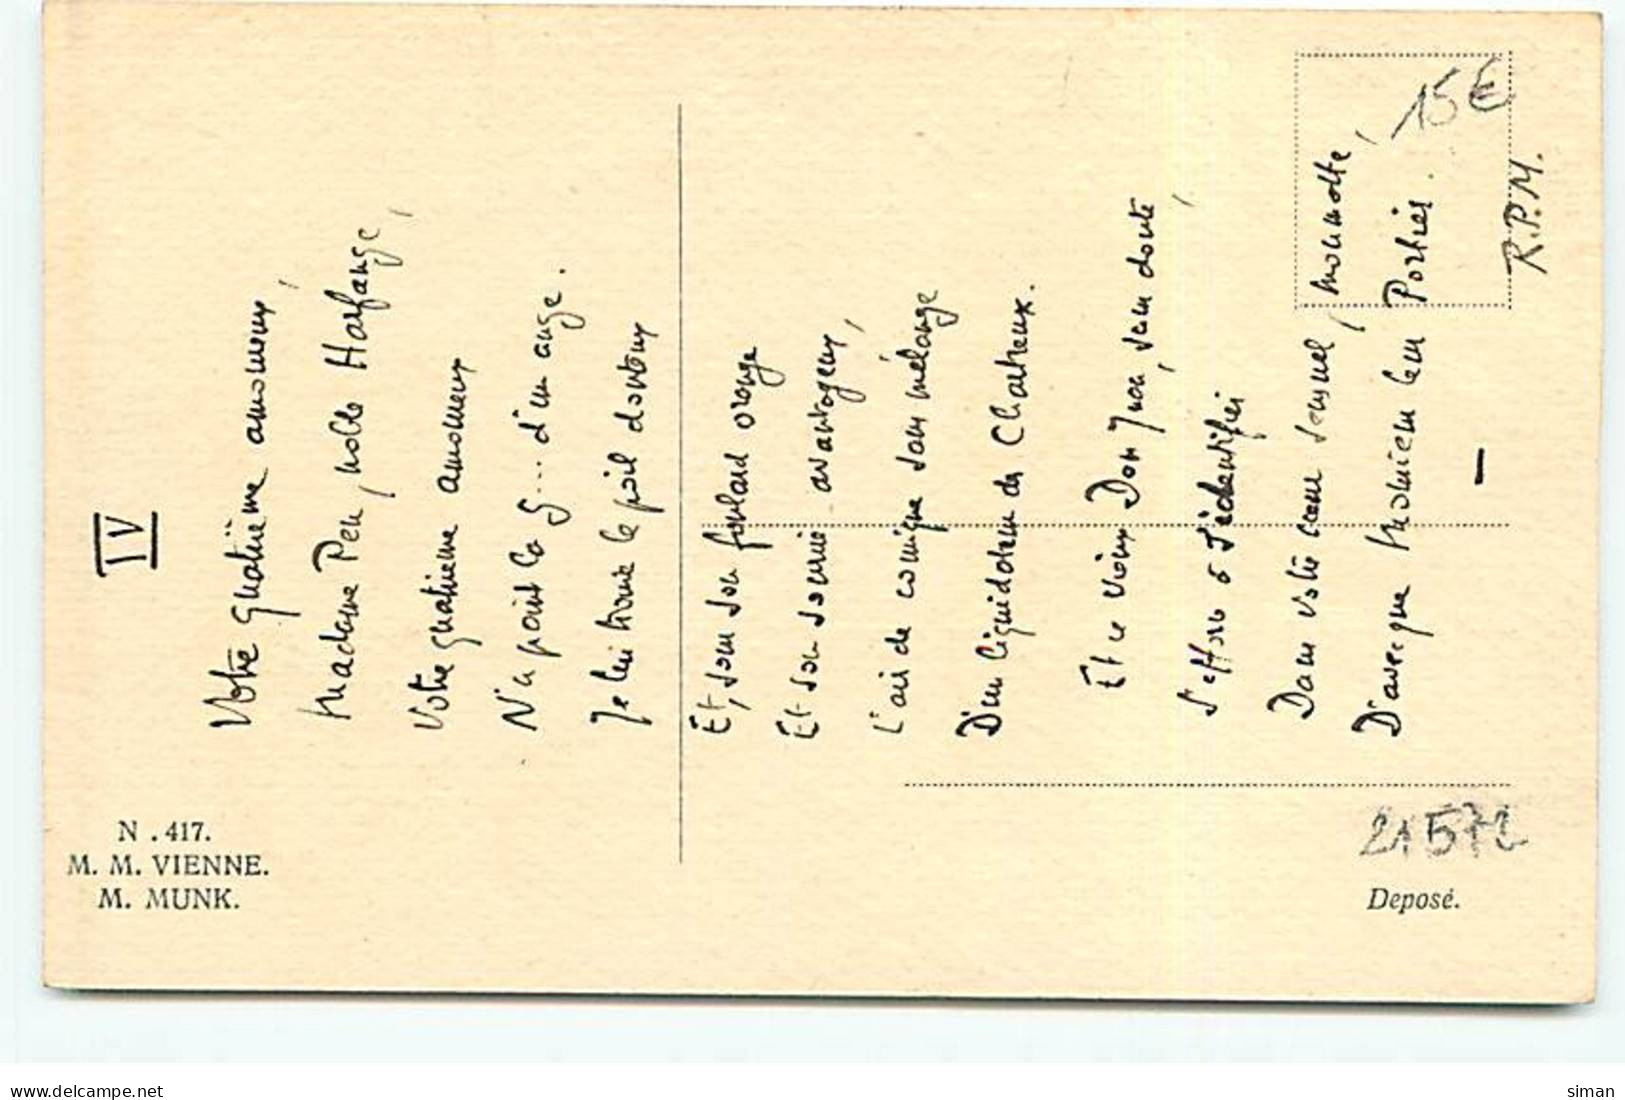 IV
Votre quatrième amoureux,
Madame Peu, noble Harfange,
Votre quatrième amoureux
N'a point la g... d'un ange.
Je lui trouve le poil douteux
Et, sous son foulard orange
Et son sourire avantageux,
L'air de comique sans mélange
D'un liquidateur des Chartreux.
Et ce vieux Don Juan, sans doute,
S'efforce d'identifier
Dans votre cœur sensuel, marmotte,
D'avecque Monsieur le Portier.
R.P.M.
15 €
21572
N . 417.
M. M. VIENNE.
M. MUNK.
Deposé.
www.delcampe.net
siman